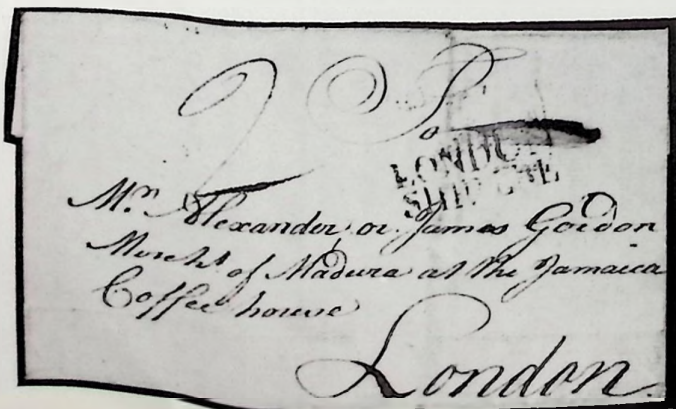 2 S.
LONDON
SHIP LRE
Mr. Alexander, or James Gordon
Merchts of Madura at the Jamaica
Coffee house
London.